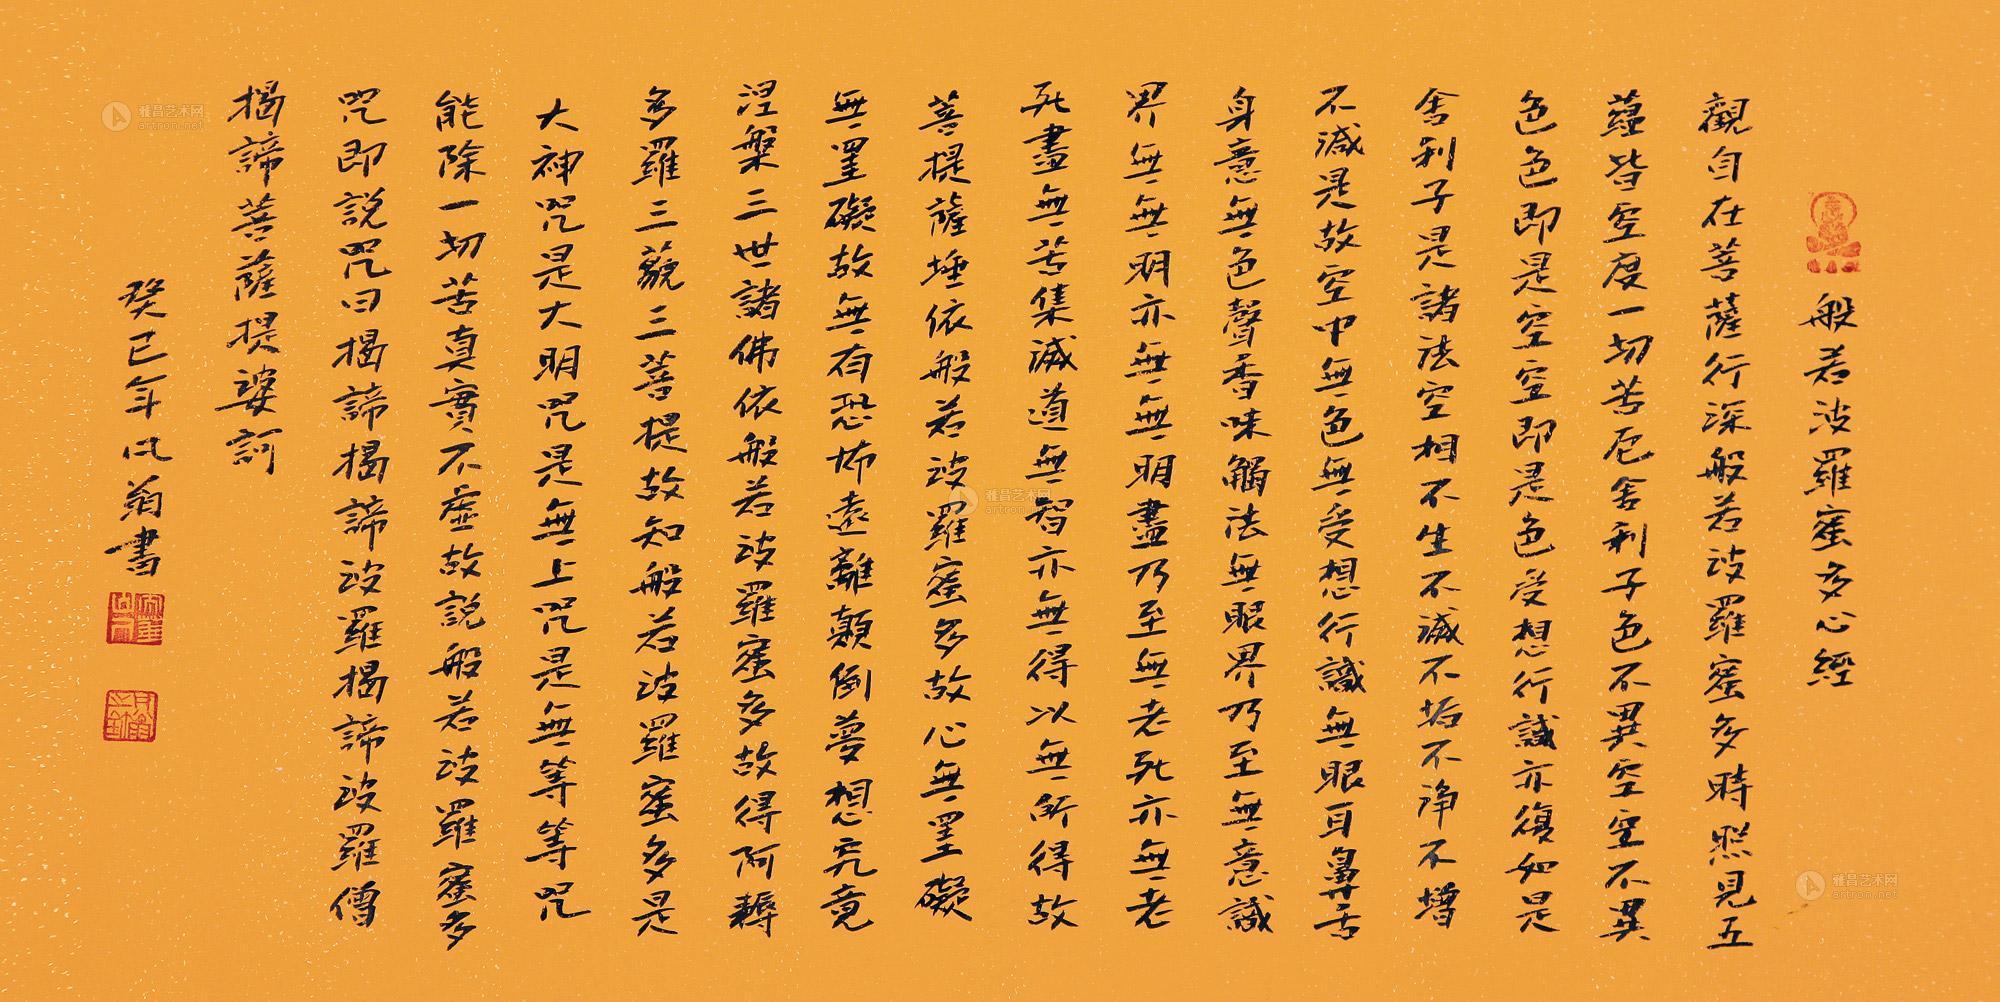 般若波羅蜜多心經
觀自在菩薩行深般若波羅蜜多時照見五
蘊皆空度一切苦厄舍利子色不異空空不異
色色即是空空即是色受想行識亦復如是
舍利子是諸法空相不生不滅不垢不淨不增
不減是故空中無色無受想行識無眼耳鼻舌
身意無色聲香味觸法無眼界乃至無意識
界無無明亦無無明盡乃至無老死亦無老
死盡無苦集滅道無智亦無得以無所得故
菩提薩埵依般若波羅蜜多故心無罣礙
無罣礙故無有恐怖遠離顛倒夢想究竟
涅槃三世諸佛依般若波羅蜜多故得阿耨
多羅三藐三菩提故知般若波羅蜜多是
大神咒是大明咒是無上咒是無等等咒
能除一切苦真實不虛故說般若波羅蜜多
咒即說咒曰揭諦揭諦波羅揭諦波羅僧
揭諦菩薩提婆訶
癸巳年翁書
雅昌艺术网
artron.net
雅昌艺术网
artron.net
雅昌艺术网
artron.net